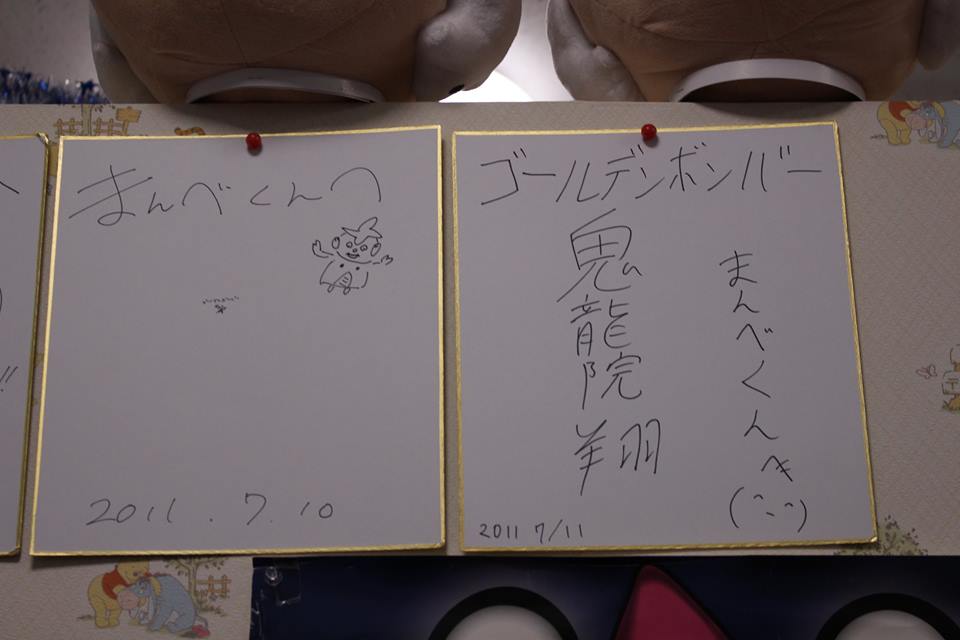 まんべくんへ
2011.7.10
ゴールデンボンバー
鬼龍院翔
まんべくんへ
(^-^)
2011 7/11
!!